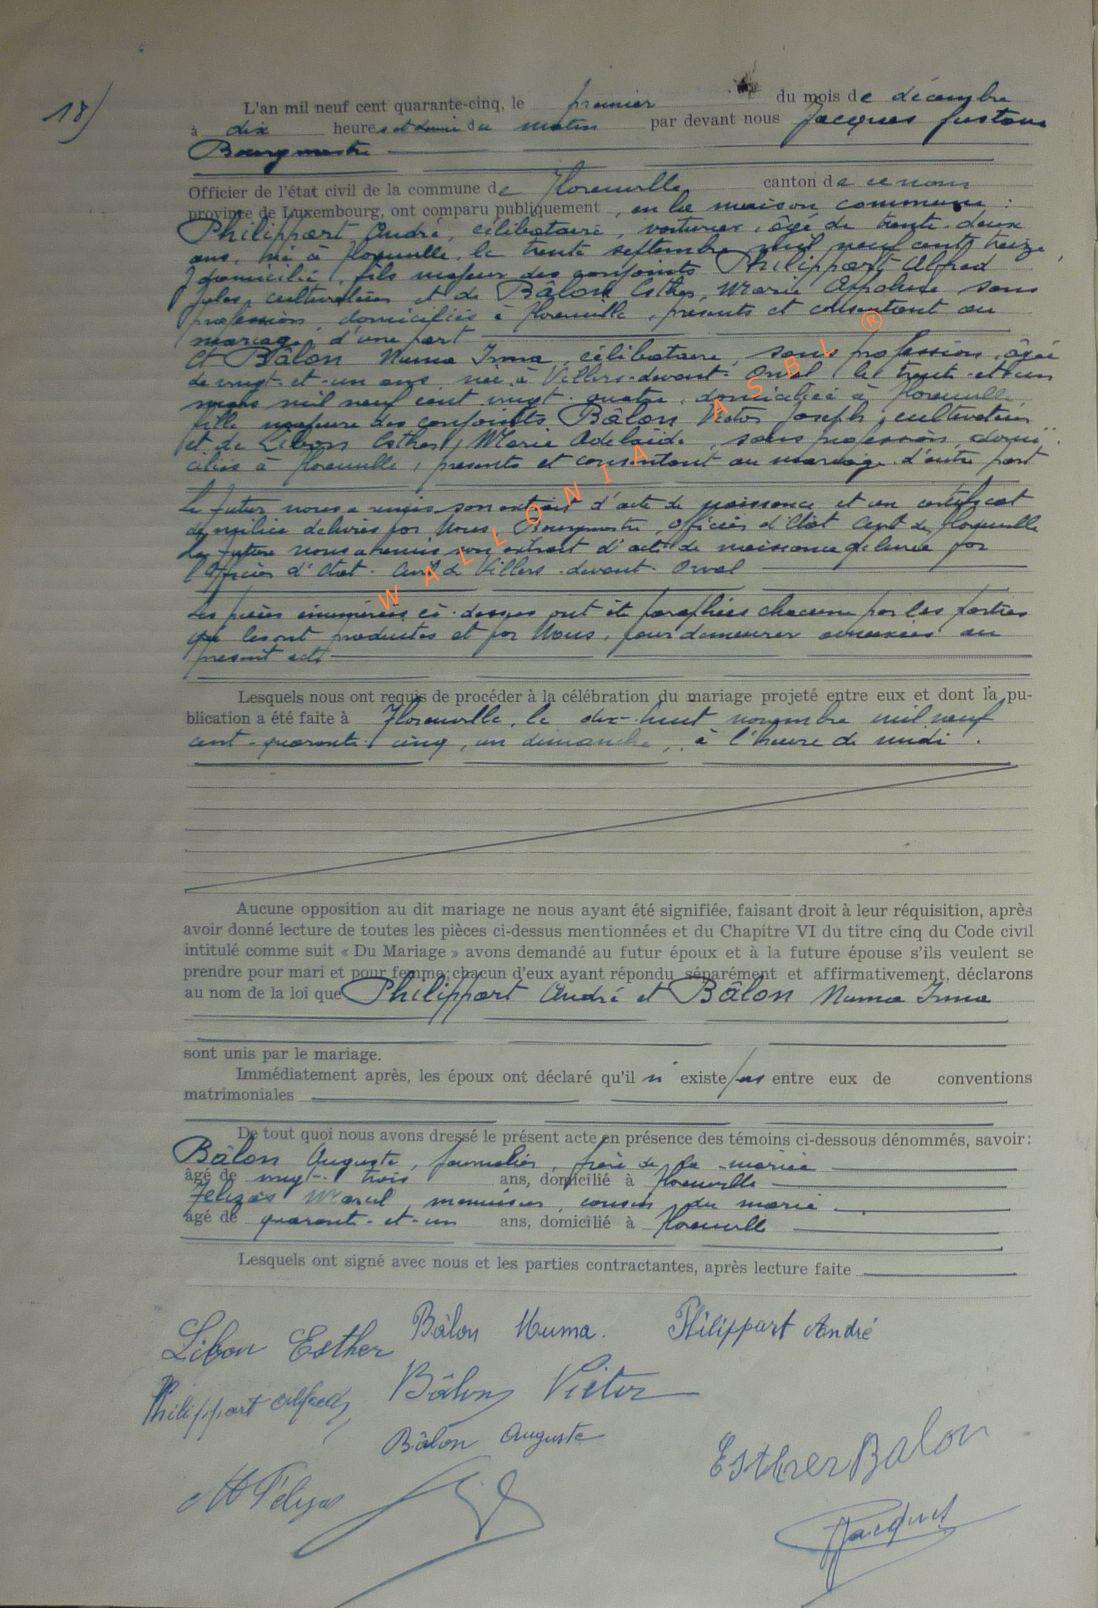 18)
L'an mil neuf cent quarante-cinq, le premier du mois de décembre
à dix heures et demie du matin par devant nous Jacques Justour
Bourgmestre
Officier de l'état civil de la commune de Florenville canton de ce nom
province de Luxembourg, ont comparu publiquement, en la maison commune :
Philippart André, célibataire, voiturier, âgé de trente-deux
ans, né à Florenville, le trente septembre mil neuf cent treize,
y domicilié, fils majeur des conjoints Philippart Alfred
Jules, cultivateur et de Bâlon Esther, Marie sans
profession, domiciliés à Florenville, présents et consentant au
mariage, d'une part
Et Bâlon Numa Irma, célibataire, sans profession, âgée
de vingt-et-un ans, née à Villers-devant-Orval le trente-et-un
mars mil neuf cent vingt-quatre, domiciliée à Florenville,
fille majeure des conjoints Bâlon Victor Joseph, cultivateur
et de Libon Esther, Marie Adelaïde, sans profession, domi-
ciliés à Florenville, présents et consentant au mariage, d'autre part
Le futur nous a remis son extrait d'acte de naissance et un certificat
de milice délivrés par Nous, Bourgmestre, Officier d'Etat Civil de Florenville
La future nous a remis son extrait d'acte de naissance délivré par
l'Officier d'Etat-Civil de Villers-devant-Orval
Les pièces énumérées ci-dessus ont été paraphées chacune par les parties
qui les ont produites et par Nous, pour demeurer annexées au
présent acte
Lesquels nous ont requis de procéder à la célébration du mariage projeté entre eux et dont la pu-
blication a été faite à Florenville, le dix-huit novembre mil neuf
cent-quarante-cinq, un dimanche, à l'heure de midi.
Aucune opposition au dit mariage ne nous ayant été signifiée, faisant droit à leur réquisition, après
avoir donné lecture de toutes les pièces ci-dessus mentionnées et du Chapitre VI du titre cinq du Code civil
intitulé comme suit « Du Mariage » avons demandé au futur époux et à la future épouse s'ils veulent se
prendre pour mari et pour femme; chacun d'eux ayant répondu séparément et affirmativement, déclarons
au nom de la loi que Philippart André et Bâlon Numa Irma
sont unis par le mariage.
Immédiatement après, les époux ont déclaré qu'il n'existe pas entre eux de conventions
matrimoniales
De tout quoi nous avons dressé le présent acte en présence des témoins ci-dessous dénommés, savoir :
Bâlon Auguste, journalier, frère de la mariée
âgé de vingt-trois ans, domicilié à Florenville
Felizas Marcel, menuisier, cousin du marié
âgé de quarante-et-un ans, domicilié à Florenville
Lesquels ont signé avec nous et les parties contractantes, après lecture faite
Libon Esther Bâlon Numa. Philippart André
Philippart Alfred Bâlon Victor
Bâlon Auguste
Esther Balon
M Felizas
Jacques
WALLONIA ASBL ®